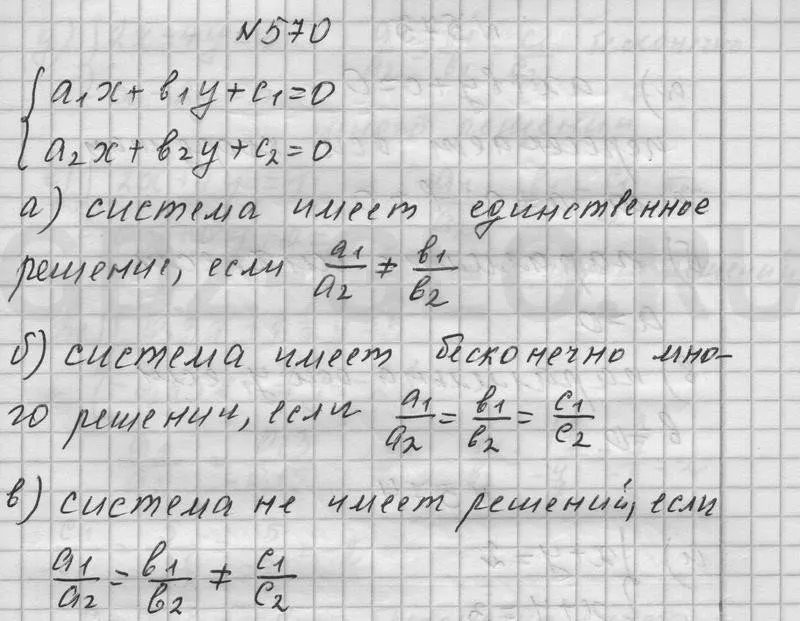 №570
a₁x + b₁y + c₁ = 0
a₂x + b₂y + c₂ = 0
а) система имеет единственное
решение, если a₁/a₂ ≠ b₁/b₂
б) система имеет бесконечно мно-
го решений, если a₁/a₂ = b₁/b₂ = c₁/c₂
в) система не имеет решений, если
a₁/a₂ = b₁/b₂ ≠ c₁/c₂